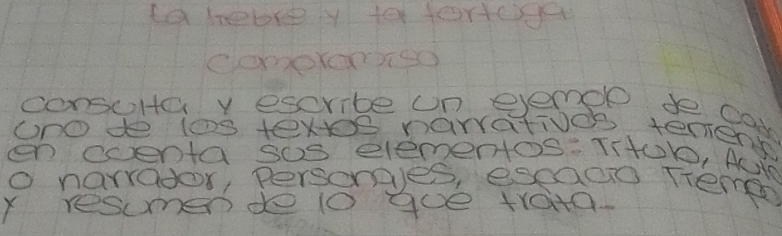 la liebre y la tortuga
compromiso
consulta y escribe un ejemplo de cada
uno de los textos narrativos teniendo
en cuenta sus elementos: Titulo, Auto
o narrador, Personajes, espacio Tiempo
y resumen de lo que trata.